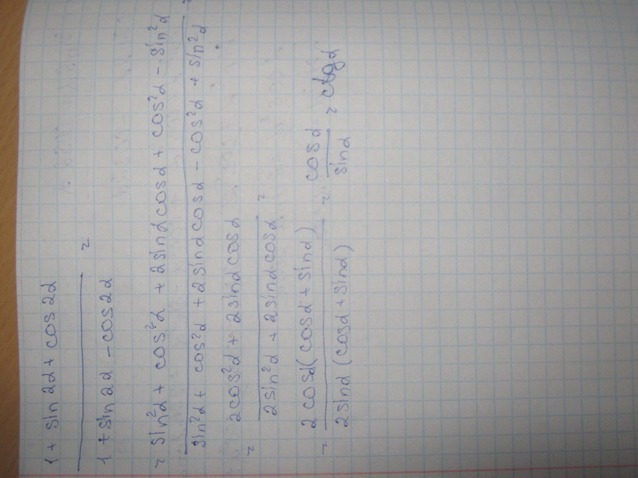 1 + sin 2α + cos 2α
1 + sin 2α - cos 2α =
= sin²α + cos²α + 2 sin α cos α + cos²α - sin²α =
sin²α + cos²α + 2 sin α cos α - cos²α + sin²α
= 2 cos²α + 2 sin α cos α =
2 sin²α + 2 sin α cos α
= 2 cos α (cos α + sin α) = cos α = ctg α
2 sin α (cos α + sin α) sin α